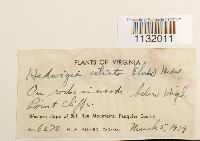 1132011
PLANTS OF VIRGINIA
Hedwigia ciliata (Ehrh.) Hedw.
On rocks in woods below High
Point Cliffs.
Western slope of Bull Run Mountains, Fauquier County
No. 6270 H. A. ALLARD March 5, 1939